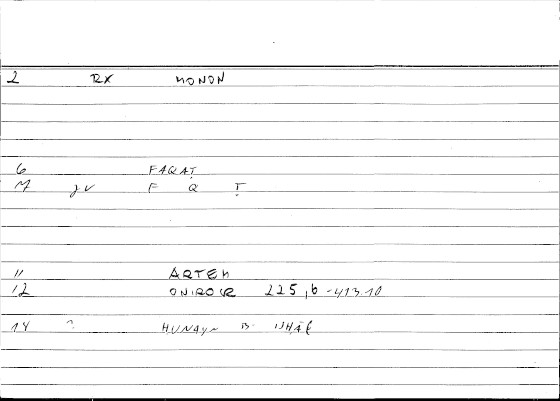 2 RX MONON
6 FAQAṬ
M gv F Q Ṭ
11 ARTEM
12 ONIROCR 225,6-413.10
14 ? HUNAYN B. ISḤĀQ